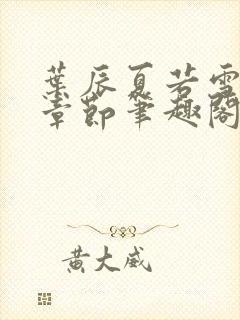 葉辰夏若雪
章節筆趣閣
黃大威